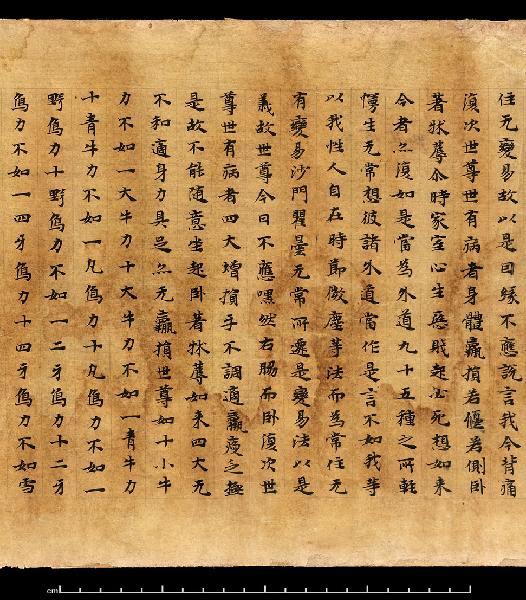 住无變易故以是因緣不應說言我今背痛
復次世尊世有病者身體羸損若偃若側卧
著牀蓐尒時家室心生惡賤起必死想如來
今者亦復如是當為外道九十五種之所輕
慢生无常想彼諸外道當作是言不如我等
以我性人自在時節微塵等法而為常住无
有變易沙門瞿曇无常所遷是變易法以是
義故世尊今日不應嘿然右脇而卧復次世
尊世有病者四大增損乎不調適羸瘦乏極
是故不能隨意坐起卧著牀蓐如來四大无
不和適身力具足亦无羸損世尊如十小牛
力不如一大牛力十大牛力不如一青牛力
十青牛力不如一凡鳥力十凡鳥力不如一
野鳥力十野鳥力不如一二牙鳥力十二牙
鳥力不如一四牙鳥力十四牙鳥力不如雪
cm